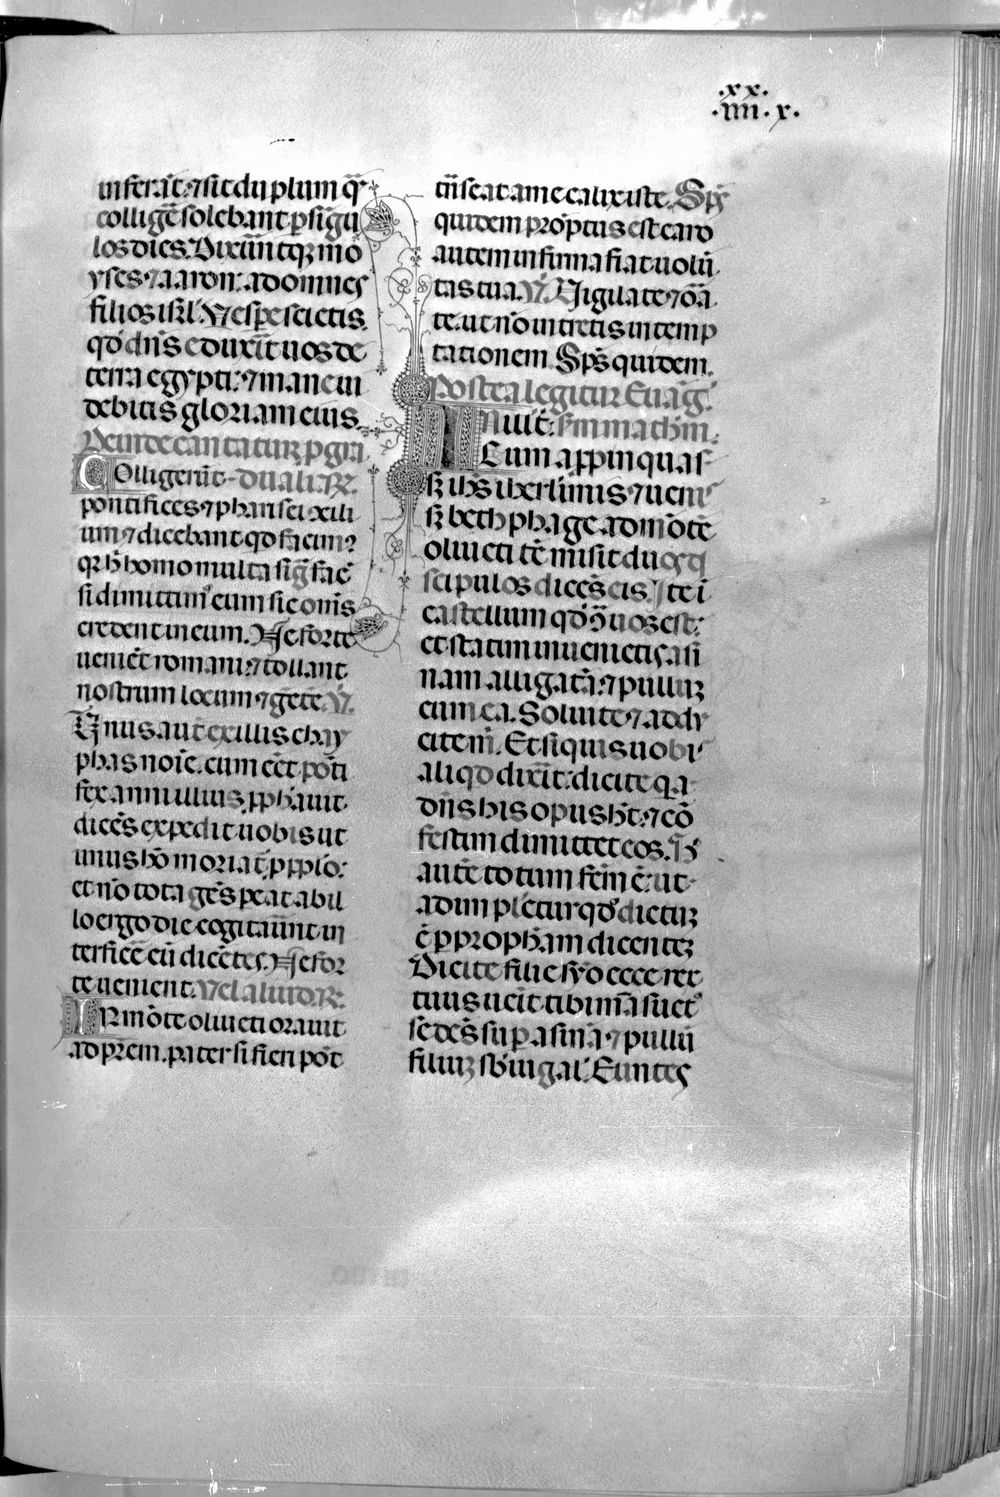 .xx.
.iiii.x.
inferāt:⁊sit duplum q̄ꝫ
colligē solebant ꝑ sīgu
los dies. Dixūntqꝫ mo
yses ⁊ aaron: ad omnes
filios isrl̄. Uespe scietis
qd̓ dn̄s eduxīt uos de
terra egypti: ⁊ mane ui
debitis gloriam eius
Deinde cantatur p gra
Colligerūt duali. R.
pontifices ⁊ pharisei xili
um ⁊ dicebant qd̓ facim?
qꝛ h̄ homo multa siḡ fac̄
si dimittim᾽ eum sic om̄s
credent in eum. Ne forte
uenīet romani ⁊ tollant
nostrum locum ⁊ gētē. V.
Unus aut̄ ex illis chay
phas noīe. cum eēt pōti
fex anni illius. ꝓph̄auit
dicēs expedit uobis ut
unus hō moriat̄ ꝑ ppl̄o:
et nō tota gēs peat ab il
lo ergo die cogitaūnt in
terficē eū dicētes. Ne for
te ueniēt. Uel aliud. R.
IN mōte oliueti orauit
ad pr̄em. pater si fieri pōt
trn̄seat a me calix iste. Sps̄
quidem prōptus est caro
autem infirma fiat uolū
tas tua. V. Uigilate ⁊ oā
te. ut nō intretis in temp
tationem. Sps̄ quidem.
Postea legitur Euāḡ.
IN illo t̄. s̄m matheū.
Cum appinquas
sꝫ ih̄s iherlimis ⁊ ueni
sꝫ bethphage ad mōtē
oliueti tē misit duos d
scipulos dicēs eis. Ite ī
castellum qd̓ ꝯ̄ uos est:
et statim inuenietis asi
nam alligatā: ⁊ pullūꝫ
cum ea. Soluite ⁊ addu
cite m̄. Et si quis uobi
aliqd̓ dixīt: dicite qꝛ a
dn̄s his opus h̄t: ⁊ cō
festim dimittet eos. H̄
autē totum fcm̄ ē: ut
adimplēetur qd̓ dictūꝫ
ē ꝑ proph̄am dicentēꝫ
Dicite filie syo ecce rex
tuus ueīt tibi māsuet᾽
sedēs sup asinā ⁊ pullū
filiuꝫ sbiugal̄. Euntes